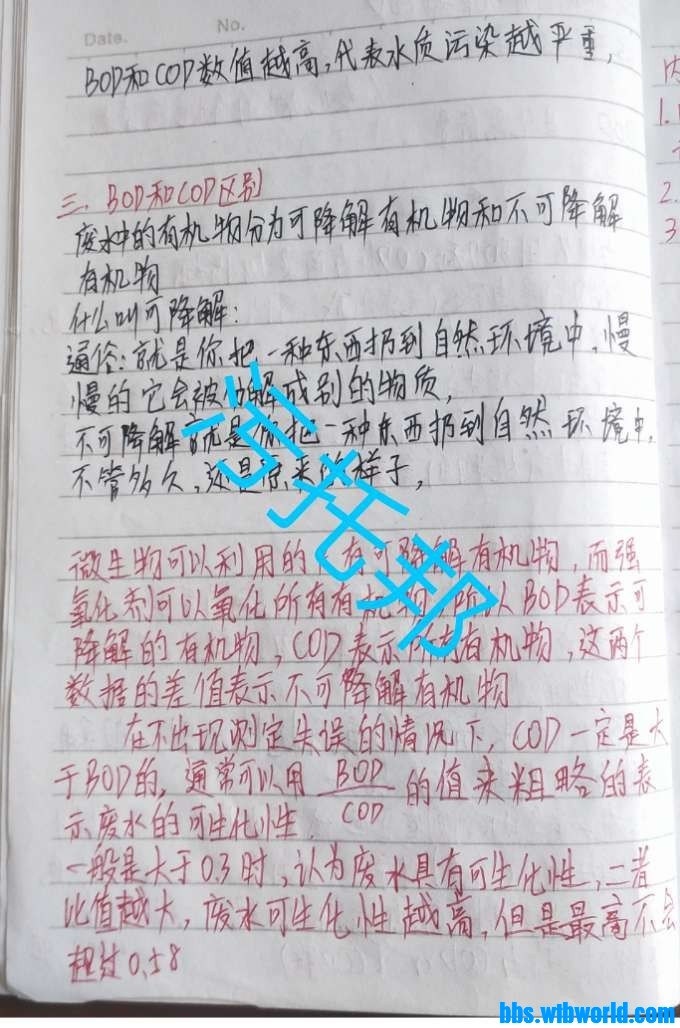 Date.
No.
BOD和COD数值越高,代表水质污染越严重,
三、BOD和COD区别
废水中的有机物分为可降解有机物和不可降解
有机物
什么叫可降解:
通俗:就是你把一种东西扔到自然环境中,慢
慢的它会被分解成别的物质,
不可降解就是你把一种东西扔到自然环境中,
不管多久,还是原来的样子,
微生物可以利用的只有可降解有机物,而强
氧化剂可以氧化所有有机物,所以BOD表示可
降解的有机物,COD表示所有有机物,这两个
数据的差值表示不可降解有机物
在不出现测定失误的情况下,COD一定是大
于BOD的,通常可以用 BOD/COD 的值来粗略的表
示废水的可生化性.
一般是大于0.3时,认为废水具有可生化性,二者
比值越大,废水可生化性越高,但是最高不会
超过0.58
内
1.
2.
3
湾托邦
bbs.wtbworld.com